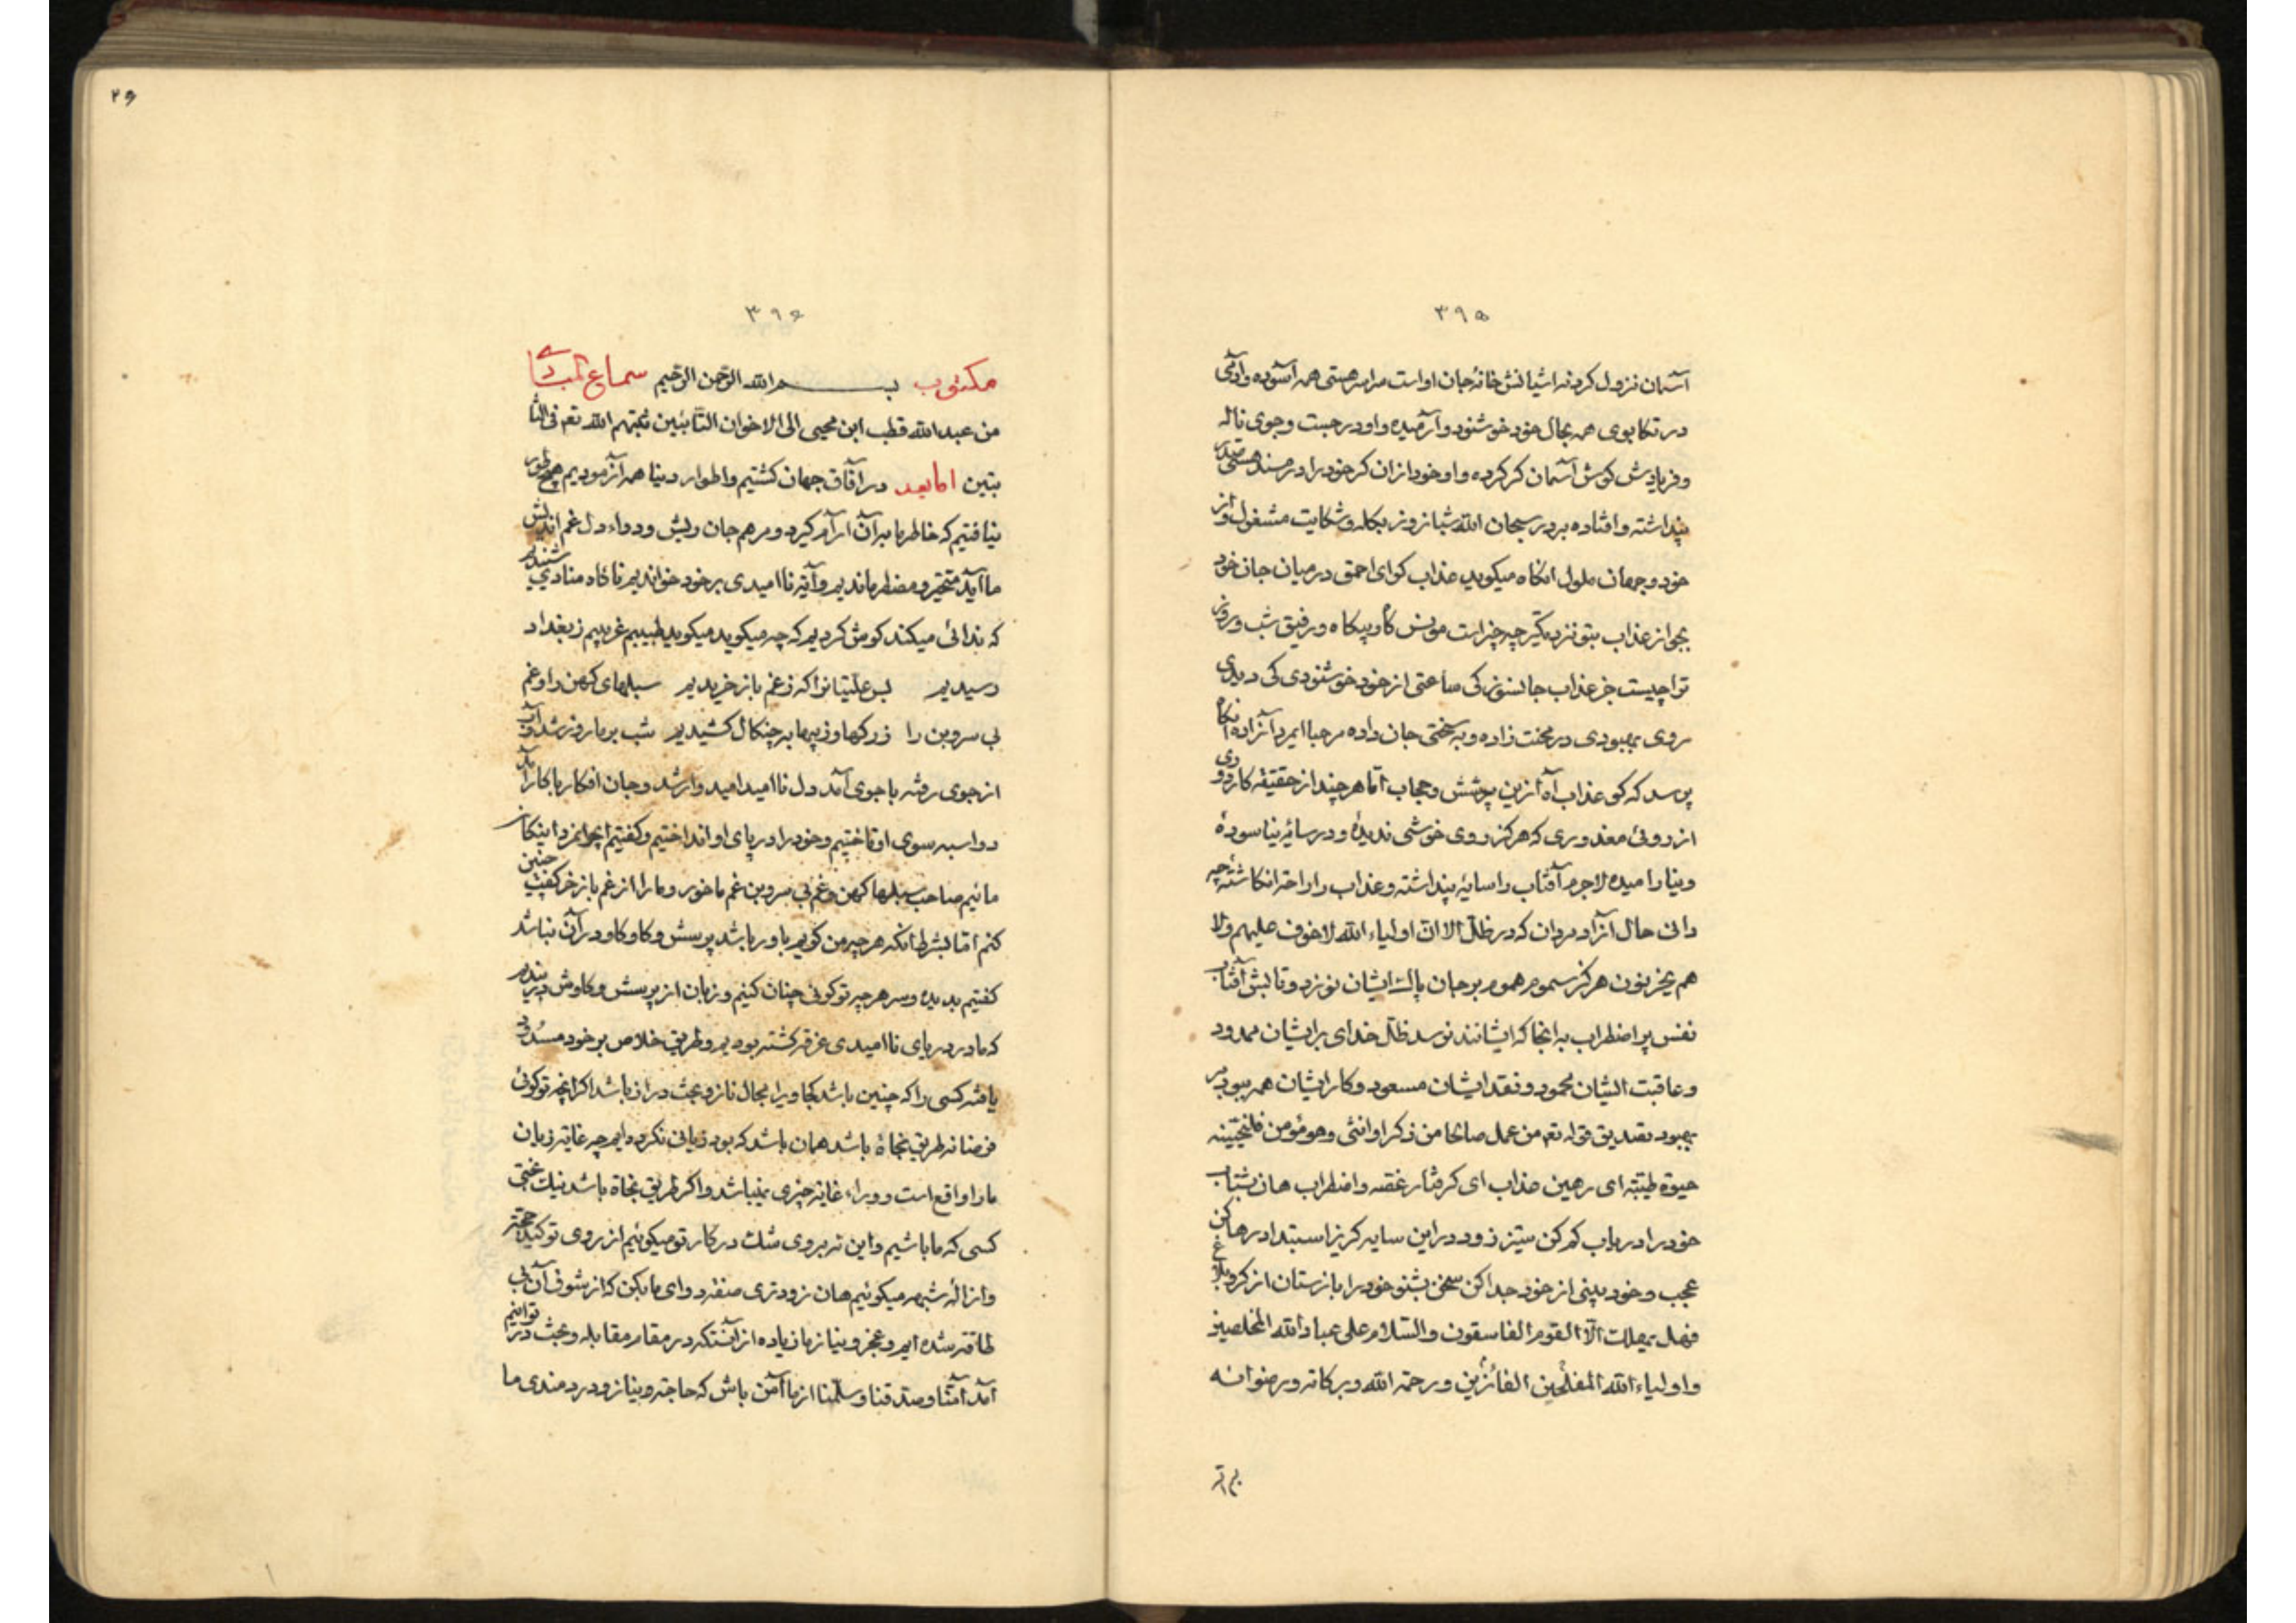 ۳۹۵
آسمان نزول کرد نه اشیانش خانهٔ جان او است مرامرهستی همه آسوده و آدمی
در تکاپوی همه بحال خود خوشنود و آرمیده و او در جست و جوی ناله
و فریادش کوش آسمان کر کرده و او خود از ان کر خود را در مسند هستی
پنداشته و افتاده بر در سبحان الله شبانروز بکله و شکایت مشغول و از
خود و جهان ملول انکاه میکوید عذاب کو ای احمق در میان جان خود
بجو از عذاب بتو نزدیکتر چه چیز است مونس کاه و بیکاه و رفیق شب و روز
تو اچیست جز عذاب جانسوز کی ساعتی از خود خوشنودی کی دیدی
روی بهبودی در محنت زاده و به سختی جان داده مرحبا ایمرد آزاده انکاه
پرسد که کو عذاب آه ازین پوشش و حجاب اما هر چند از حقیقة کار دوری
از روئی معذوری که هرکز روی خوشی ندیدهٔ و در سایه نیاسودهٔ
لاجرم آفتاب را سایه پنداشته و عذاب را راحة انکاشته چه
دانی حال آزاد مردان که در ظلال الا ان اولیاء الله لا خوف علیهم ولا
هم یحزنون هرکز سموم هموم بر جان پاک ایشان نوزد و تابش آفتاب
نفس پر اضطراب به انجا که ایشانند نرسد ظل خدای بر ایشان ممدود
و عاقبت ایشان محمود و نقد ایشان مسعود و کار ایشان همه بهبود در
بهبود تصدیق قوله تعم من عمل صالحا من ذکر او انثی وهو مؤمن فلنحیینه
حیوة طیبة ای رهین عذاب ای کرفتار غصه و اضطراب هان بشتاب
خود را دریاب کم کن ستیز زود در این سایه کریز استبداد رها کن
عجب و خود بینی از خود جدا کن سخن بشنو خود را بازستان از کرو بلاغ
فهل یهلک الا القوم الفاسقون والسلام علی عباد الله المخلصین
واولیاء الله المفلحین الفائزین ورحمة الله وبرکاته ورضوانه
۳۹۶
مکتوب بسم الله الرحمن الرحیم سماع
من عبد الله قطب ابن محیی الی الاخوان التائبین ثبتهم الله تعم فی الثا
بتین اما بعد در آفاق جهان کشتیم و اطوار دنیا همه آزمودیم هیچ طور
نیافتیم که خاطر ما بر آن آرام کیرد و مرهم جان ریش و دواء دل غم اندیش
ما آید متحیر و مضطر ماندیم و آیة ناامیدی بر خود خواندیم ناکاه منادیی شنیدیم
که ندائی میکند کوش کردیم که چه میکوید میکوید طبیبیم غریبیم ز بغداد
رسیدیم بس علیتیانرا که ز غم باز خریدیم سبلهای کهن را و غم
بی سر و بن را ز رکها و ز پیها به چنکال کشیدیم شب بر ما روز شد و آب
از جوی رفته با جوی آمد دل ناامید امید وار شد و جان افکار با کار آمد
دواسبه سوی او تاختیم و خود را در پای او انداختیم و کفتیم ایجوانمرد اینکار
مائیم صاحب سبلها کهن و غم بی سر و بن غم ما خور و ما را از غم باز خر کفت چنین
کنم اما بشرط آنکه هر چه من کویم باور باشد پرسش و کاوکاو در آن نباشد
کفتیم بدیده و سر هر چه تو کوئی چنان کنیم و زبان از پرسش و کاوش در بندیم
که ما در دریای ناامیدی غرقه کشته بودیم و طریق خلاص بر خود مسدود
یافته کسی را که چنین باشد کجا ویرا مجال ناز و بحث دراز باشد اکر انچه تو کوئی
فرضا نه طریق نجاة باشد همان باشد که بود زیانی نکرده ایم چه غایة زیان
ما را واقع است و وراء غایة چیزی نمیباشد و اکر طریق نجاة باشد نیک بختی
کسی که ما باشیم و این نه بر وی شک در کار تو میکوئیم از روی توکید حجة
و ازالهٔ شبهه میکوئیم هان زودتری صنفرد وای ما بکن که از شوق آن بی
طاقة شده ایم و عجز و نیاز ما زیاده از آنستکه در مقام مقابله و بحث در توانیم
آمد آمنا وصدقنا وسلمنا از ما آمن باش که حاجة و نیاز و دردمندی ما